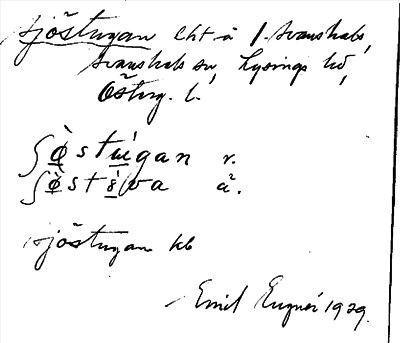 Sjöstugan lht å 1. Svanshals,
Svanshals sn, Lysings hd,
Österg. l.
ʃø̀stúgan r.
ʃø̀st́va ä.
Sjöstugan kb
Emil 1929.